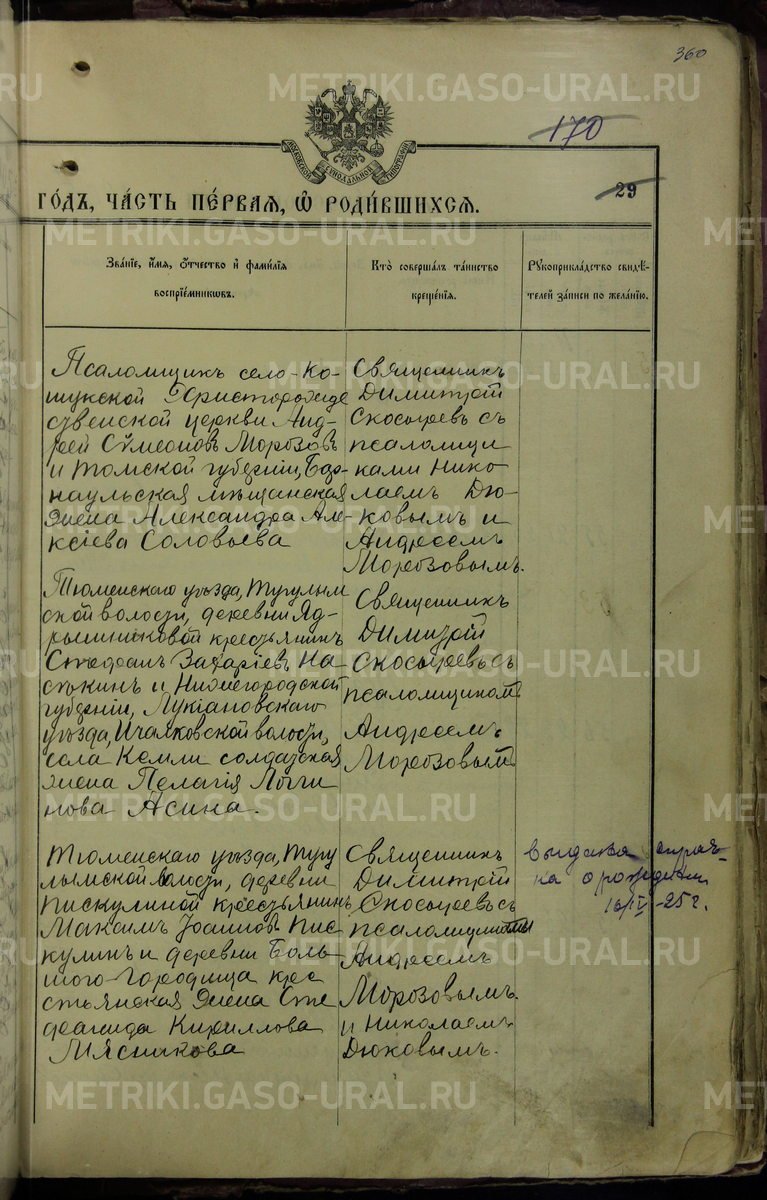 360
170
МОСКОВСКОЙ СѴНОДАЛЬНОЙ ТИПОГРАФІИ
29
ГО́ДЪ, ЧА́СТЬ ПЕ́РВАЯ, Ѡ҆ РОДИ́ВШИХСЯ.
Зва́нїе, и҆́мѧ, ѻ҆́тчество и҆ фамѝлїѧ
воспрїе́мниковъ.
Кто̀ соверша́лъ та́инство
креще́нїѧ.
Рꙋкоприкла́дство свидѣ́-
телей за́писи по жела́нїю.
Псаломщикъ село-Ко-
шукской Христорожде
ственской церкви Анд-
рей Сѵмеоновъ Морозовъ
и Томской губерніи, Бар-
наульская мѣщанская
жена Александра Але-
ксіева Соловьева
Священникъ
Димитрій
Скосыревъ съ
псаломщи
ками Нико-
лаемъ Дю-
ковымъ и
Андреемъ
Морозовымъ.
Тюменскаго уѣзда, Тугулым
ской волости, деревни Яд-
рышниковой крестьянинъ
Стефанъ Захаріевъ На
сѣкинъ и Нижегородской
губерніи, Лукіановскаго
уѣзда, Ичалковской волости,
села Кемли солдатская
жена Пелагія Логги
нова Асина.
Священникъ
Димитрій
Скосыревъ съ
псаломщикомъ
Андреемъ
Морозовымъ
Тюменскаго уѣзда, Тугу
лымской волости, деревни
Пискулиной крестьянинъ
Максимъ Іоанновъ Пис
кулинъ и деревни Боль
шого-Городища крес
стьянская жена Сте
фанида Кириллова
Мясникова
Священникъ
Димитрій
Скосыревъ съ
псаломщиками
Андреемъ
Морозовымъ
и Николаемъ
Дюковымъ.
выдана справ-
ка о рождении
16/IV-25 г.
METRIKI.GASO-URAL.RU